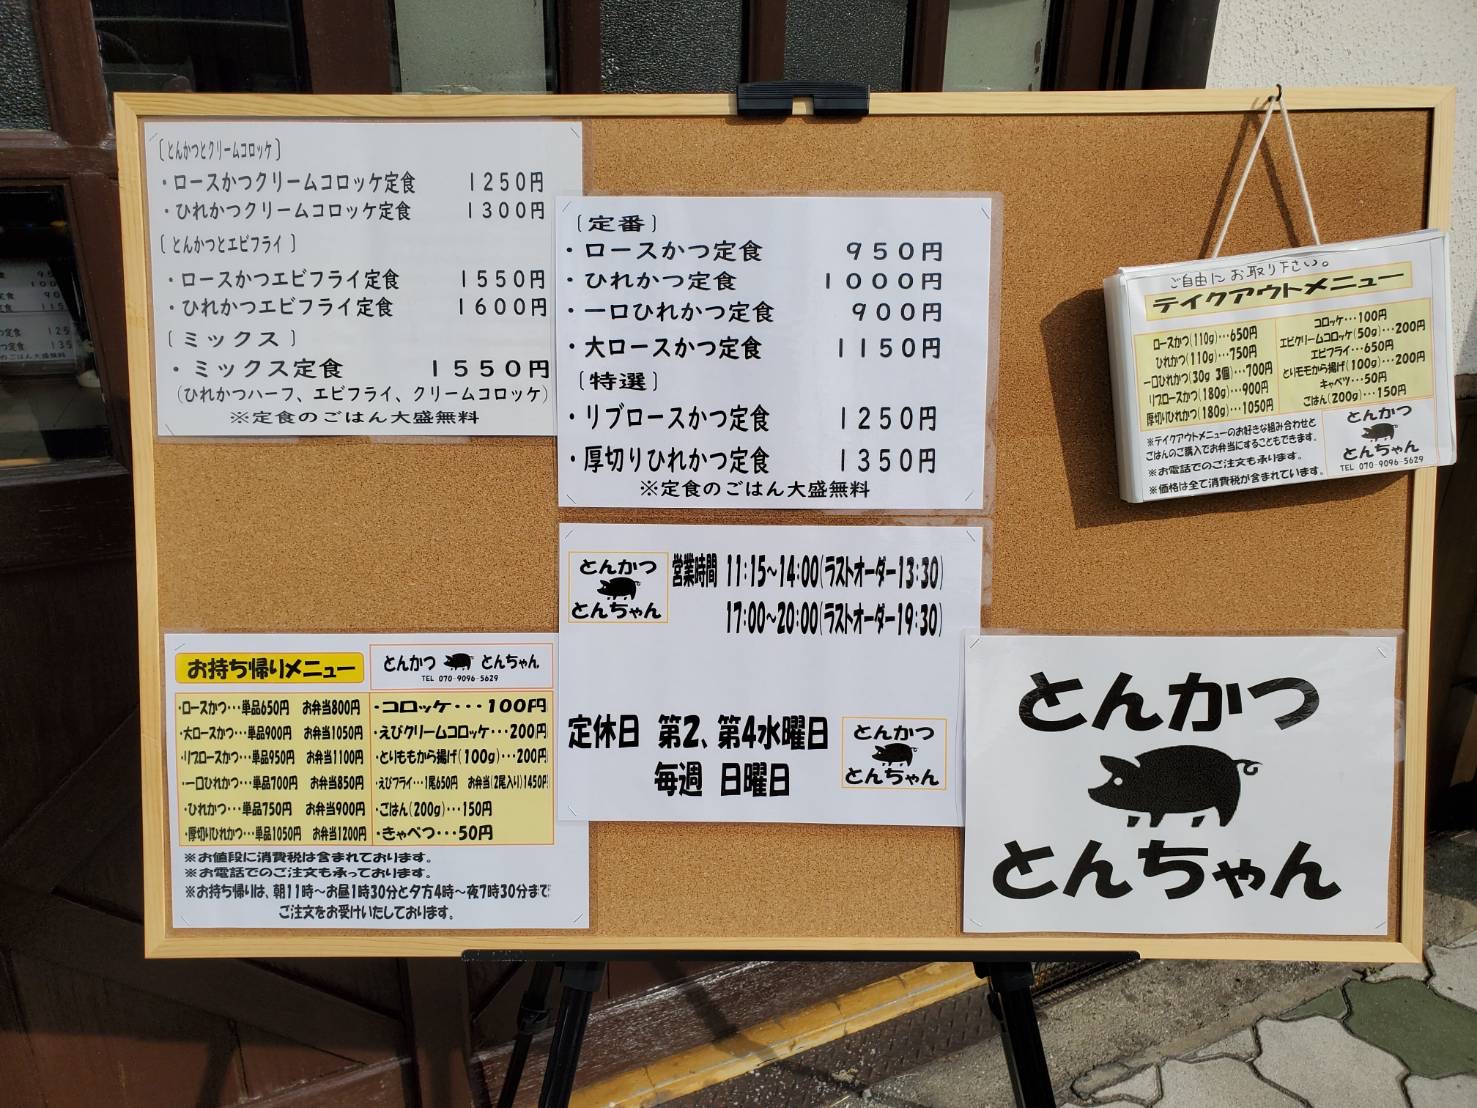 〔とんかつとクリームコロッケ〕
・ロースかつクリームコロッケ定食 1250円
・ひれかつクリームコロッケ定食 1300円
〔とんかつとエビフライ〕
・ロースかつエビフライ定食 1550円
・ひれかつエビフライ定食 1600円
〔ミックス〕
・ミックス定食 1550円
(ひれかつハーフ、エビフライ、クリームコロッケ)
※定食のごはん大盛無料
〔定番〕
・ロースかつ定食 950円
・ひれかつ定食 1000円
・一口ひれかつ定食 900円
・大ロースかつ定食 1150円
〔特選〕
・リブロースかつ定食 1250円
・厚切りひれかつ定食 1350円
※定食のごはん大盛無料
ご自由にお取り下さい。
テイクアウトメニュー
ロースかつ(110g)…650円
ひれかつ(110g)…750円
一口ひれかつ(30g 3個)…700円
リブロースかつ(180g)…900円
厚切りひれかつ(180g)…1050円
コロッケ…100円
エビクリームコロッケ(50g)…200円
エビフライ…650円
とりももから揚げ(100g)…200円
キャベツ…50円
ごはん(200g)…150円
※テイクアウトメニューのお好きな組み合わせと
ごはんのご購入でお弁当にすることもできます。
※お電話でのご注文も承ります。
※価格は全て消費税が含まれています。
とんかつ
とんちゃん
TEL 070-9096-5629
とんかつ
とんちゃん
営業時間 11:15～14:00(ラストオーダー13:30)
17:00～20:00(ラストオーダー19:30)
定休日 第2、第4水曜日
毎週 日曜日
とんかつ
とんちゃん
お持ち帰りメニュー
とんかつ とんちゃん
TEL 070-9096-5629
・ロースかつ…単品650円 お弁当800円
・大ロースかつ…単品900円 お弁当1050円
・リブロースかつ…単品950円 お弁当1100円
・一口ひれかつ…単品700円 お弁当850円
・ひれかつ…単品750円 お弁当900円
・厚切りひれかつ…単品1050円 お弁当1200円
・コロッケ・・・100円
・えびクリームコロッケ・・・200円
・とりももから揚げ(100g)・・・200円
・えびフライ…1尾650円 お弁当(2尾入り)1450円
・ごはん(200g)…150円
・きゃべつ・・・50円
※お値段に消費税は含まれております。
※お電話でのご注文も承っております。
※お持ち帰りは、朝11時～お昼1時30分と夕方4時～夜7時30分まで
ご注文をお受けいたしております。
とんかつ
とんちゃん